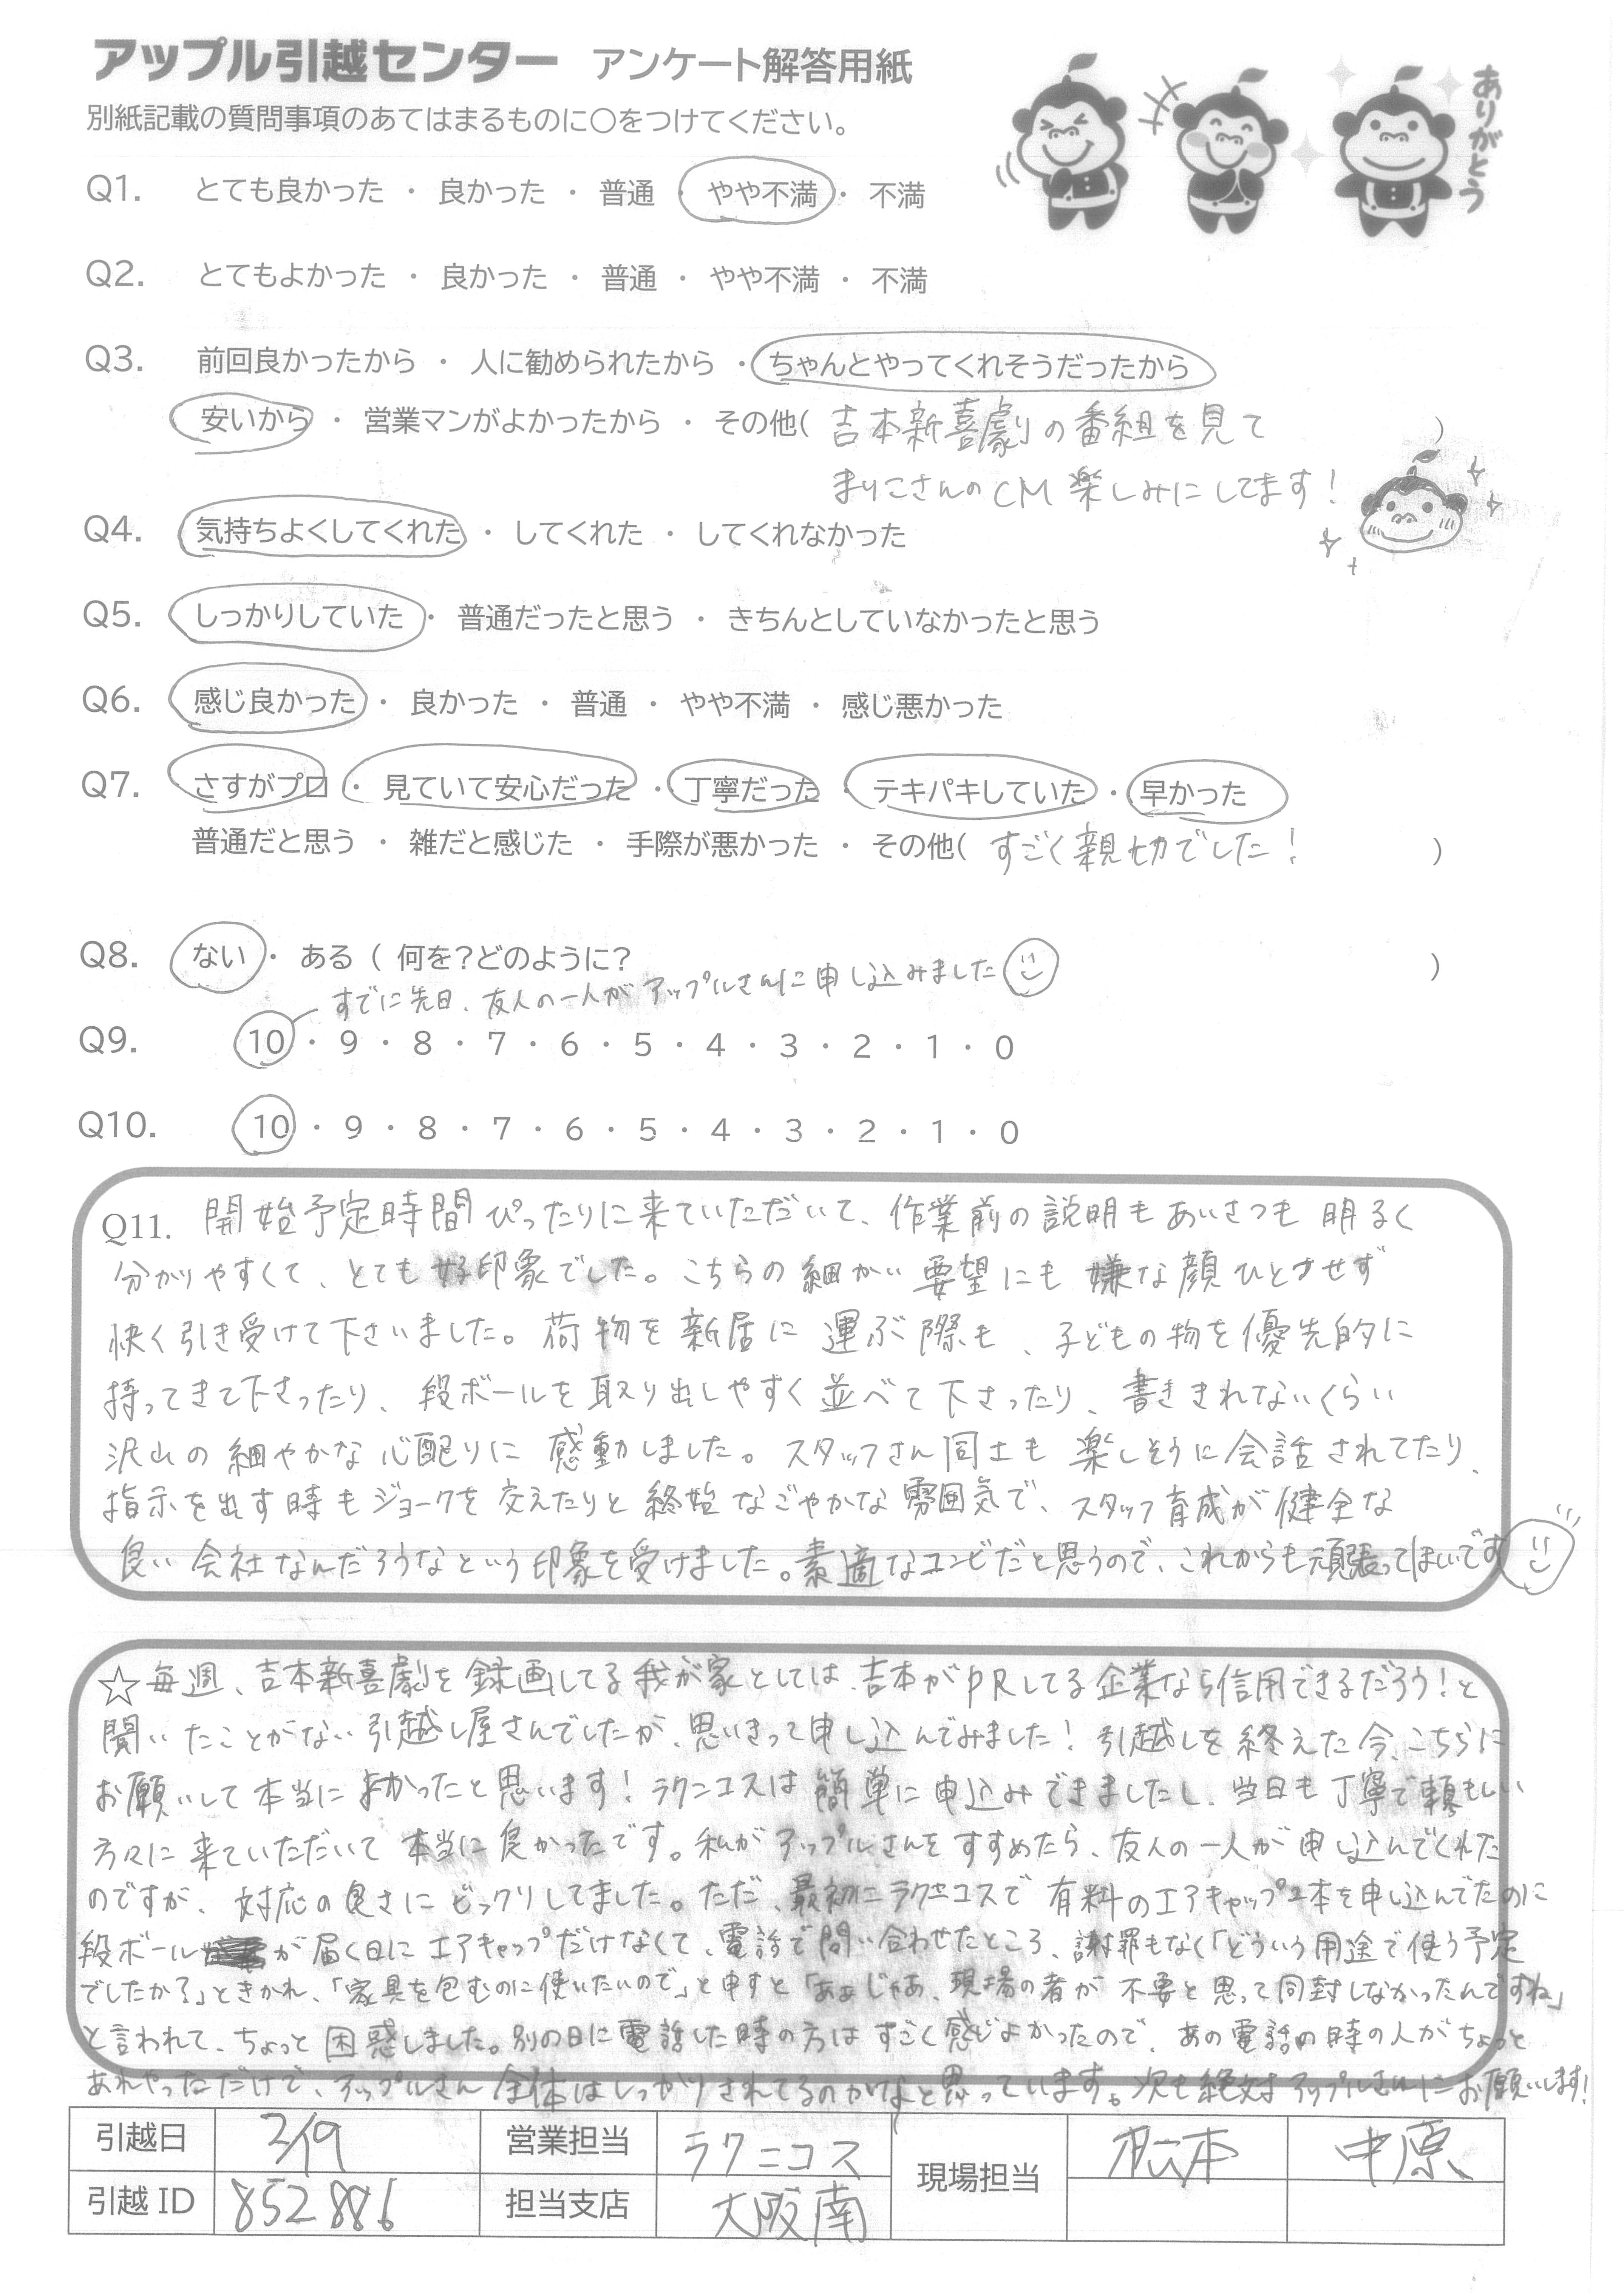 アップル引越センター アンケート解答用紙
別紙記載の質問事項のあてはまるものに○をつけてください。
ありがとう
Q1. とても良かった ・ 良かった ・ 普通 ・ やや不満 ・ 不満
Q2. とてもよかった ・ 良かった ・ 普通 ・ やや不満 ・ 不満
Q3. 前回良かったから ・ 人に勧められたから ・ ちゃんとやってくれそうだったから
安いから ・ 営業マンがよかったから ・ その他( 吉本新喜劇の番組を見て )
まりこさんのCM楽しみにしてます!
Q4. 気持ちよくしてくれた ・ してくれた ・ してくれなかった
Q5. しっかりしていた ・ 普通だったと思う ・ きちんとしていなかったと思う
Q6. 感じ良かった ・ 良かった ・ 普通 ・ やや不満 ・ 感じ悪かった
Q7. さすがプロ ・ 見ていて安心だった ・ 丁寧だった ・ テキパキしていた ・ 早かった
普通だと思う ・ 雑だと感じた ・ 手際が悪かった ・ その他( すごく親切でした! )
Q8. ない ・ ある ( 何を?どのように? )
すでに先日、友人の一人がアップルさんに申し込みました
Q9. 10 ・ 9 ・ 8 ・ 7 ・ 6 ・ 5 ・ 4 ・ 3 ・ 2 ・ 1 ・ 0
Q10. 10 ・ 9 ・ 8 ・ 7 ・ 6 ・ 5 ・ 4 ・ 3 ・ 2 ・ 1 ・ 0
Q11. 開始予定時間ぴったりに来ていただいて、作業前の説明もあいさつも明るく
分かりやすくて、とても好印象でした。こちらの細かい要望にも嫌な顔ひとつせず
快く引き受けて下さいました。荷物を新居に運ぶ際も、子どもの物を優先的に
持ってきて下さったり、段ボールを取り出しやすく並べて下さったり、書ききれないくらい
沢山の細やかな心配りに感動しました。スタッフさん同士も楽しそうに会話されてたり、
指示を出す時もジョークを交えたりと終始なごやかな雰囲気で、スタッフ育成が健全な
良い会社なんだろうなという印象を受けました。素適なコンビだと思うので、これからも頑張ってほしいです
☆毎週、吉本新喜劇を録画してる我が家としては、吉本がPRしてる企業なら信用できるだろう!と
聞いたことがない引越し屋さんでしたが、思いきって申し込んでみました!引越しを終えた今、こちらに
お願いして本当によかったと思います!ラクニコスは簡単に申込みできましたし、当日も丁寧で頼もしい
方々に来ていただいて本当に良かったです。私がアップルさんをすすめたら、友人の一人が申し込んでくれた
のですが、対応の良さにビックリしてました。ただ、最初にラクニコスで有料のエアキャップ2本を申し込んでたのに
段ボールが届く日にエアキャップだけなくて、電話で問い合わせたところ、謝罪もなく「どういう用途で使う予定
でしたか?」ときかれ、「家具を包むのに使いたいので」と申すと「あぁじゃあ、現場の者が不要と思って同封しなかったんですね」
と言われて、ちょっと困惑しました。別の日に電話した時の方はすごく感じよかったので、あの電話の時の人がちょっと
あれやっただけで、アップルさん全体はしっかりされてるのかなと思っています。次も絶対アップルさんにお願いします!
引越日 2/19 営業担当 ラクニコス 現場担当 松本 中原
引越ID 852886 担当支店 大阪南